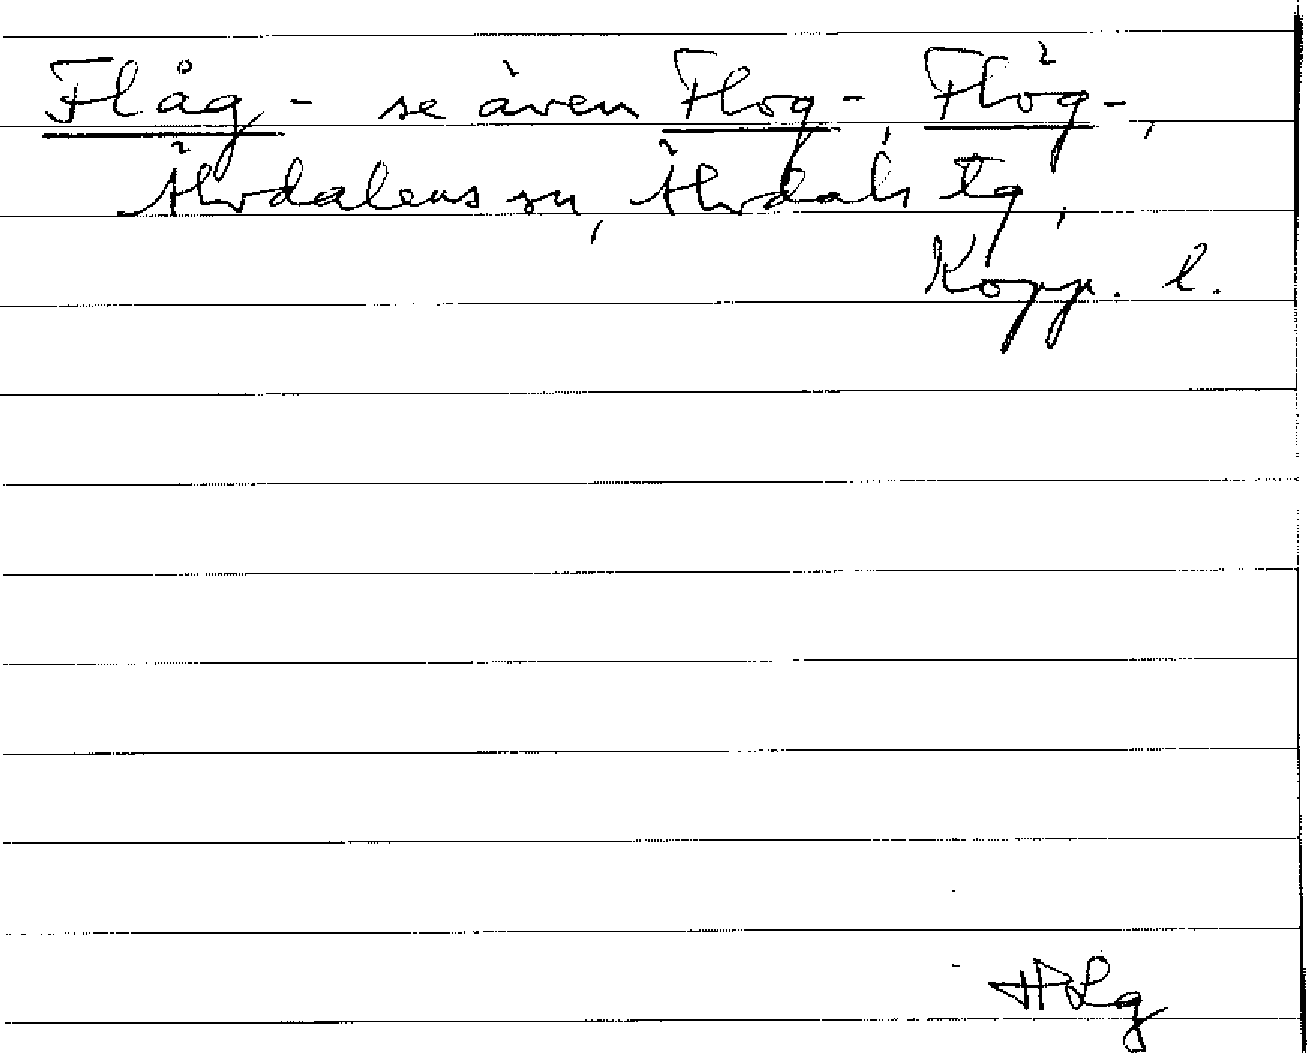 Flåg- se även Flog-, Flög-,
Älvdalens sn, Älvdals tg,
Kopp. l.
HLg